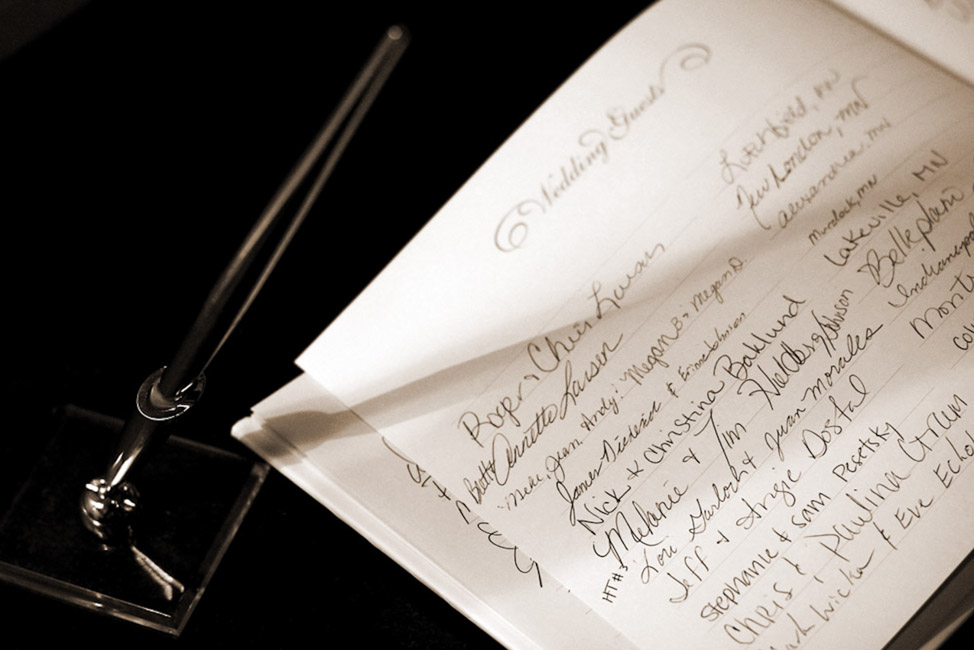 Wedding Guests
Roger & Chris Larson Litchfield, MN
Butch Annette Larsen New London, MN
Mike, Jean, Andy, Megan B & Megan D. Alexandria, MN
James & Erinne Johnson Murdock, MN
Nick & Christina Baklund Lakeville, MN
Melanie & Tim Johnson Belle plaine
Lou & Juan Morales Indianapol
Jeff & Angie Dostal Monti
Stephanie & Sam Pesetsky Co
Chris & Paulina Crum
& Eve Echo